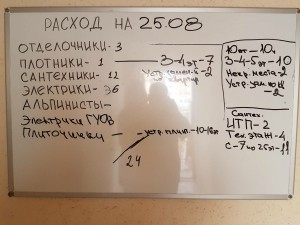 РАСХОД НА 25.08
ОТДЕЛОЧНИКИ-3
ПЛОТНИКИ-1 — 3-4эт-7
САНТЕХНИКИ-12
ЭЛЕКТРИКИ-Э6
АЛЬПИНИСТЫ-
Электрики ГУОВ
Плиточники - - устр. плит.-10-16эт
24
10эт-10ч
3-4-5эт-10
Некр. места-2
Устр. зам
-2
Сантех.
ИТП-2
Тех. этаж-4
с-7 по 25эт-11